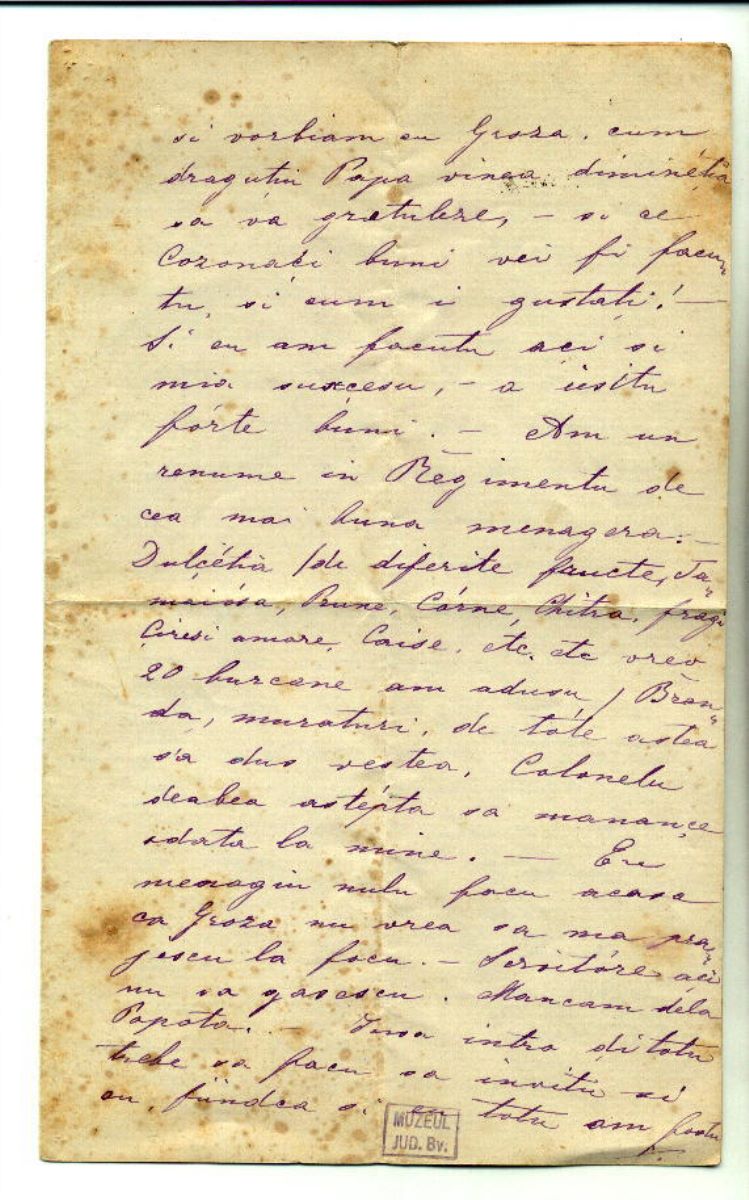 si vorbiam cu Groza. cum
dragutiu Papa vinea diminétia
sa va gratuleze, - si ce
Cozonaći buni vei fi facu„
tu, si cum i gustati! -
Si eu am facutu açi si
mia susçesu, - a iesitu
fórte buni. - Am un
renume in Regimentu de
cea mai buna menagera. -
Dulçétia /de diferite fructe, Ta„
maiósa, Prune, Córne, Chitra, fragi
Çiresi amare, Caise, etc. etc vreo
20 burcane am adusu / Bran„
da, muraturi, de tóte astea
s'a dus vestea, Colonelu
deabea astépta sa manançe
odata la mine. - Eu
menagiu nulu facu acasa
ca Groza nu vrea sa ma pra„
jescu la focu. - Servitóre açi
nu sa gasescu. Mancam dela
Popota. - Insa intro di totu
trebe sa facu sa invitu si
eu, fiindca si eu totu am fostu
MUZEUL
JUD. Bv.